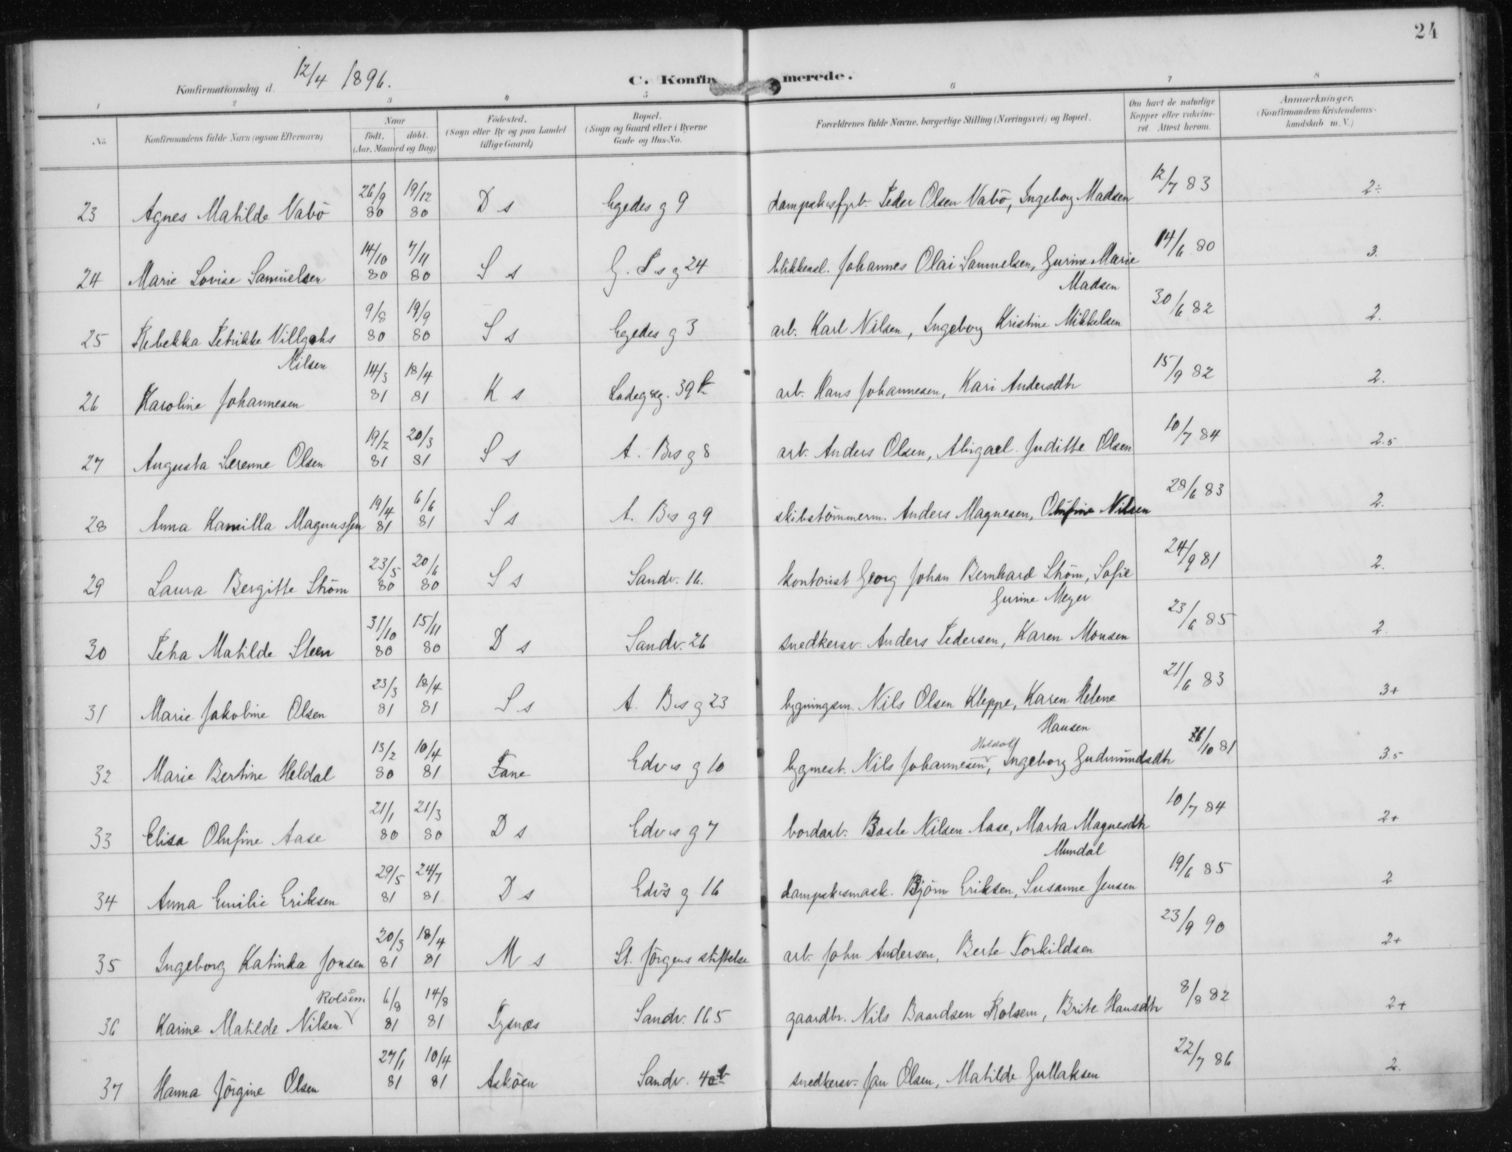 24
Konfirmationsdag d. 12/4 1896. C. Konfirmerede.
1 2 3 4 5 6 7 8
No. Konfirmandens fulde Navn (ogsaa Efternavn) Naar født. døbt. (Aar, Maaned og Dag) Fødested. (Sogn eller By og paa Landet tillige Gaard) Bopæl. (Sogn og Gaard eller i Byerne Gade og Hus-No. Forældrenes fulde Navne, borgerlige Stilling (Næringsvei) og Bopæl. Om havt de naturlige Kopper eller vakcineret. Attest herom. Anmærkninger. (Konfirmandens Kristendomskundskab m. V.)
23 Agnes Matilde Vabö 26/9 80 19/12 80 D s Egedes g 9 dampskibsfyrb. Peder Olsen Vabö, Ingeborg Madsen 12/7 83 2÷
24 Marie Lovise Samuelsen 14/10 80 7/11 80 S s 24 blikkensl. Johannes Olai Samuelsen, Gurine Marie Madsen 14/6 80 3.
25 Rebekka Petrikke Nilsen 9/8 80 19/9 80 S s Egedes g 3 arb. Karl Nilsen, Ingeborg Kristine Mikkelsen 30/6 82 2.
26 Karoline Johannesen 14/3 81 18/4 81 K s Ladegsg. 39 arb. Hans Johannesen, Kari Andersdtr 15/9 82 2.
27 Augusta Serenne Olsen 19/2 81 20/3 81 S s A. Bs g 8 arb. Anders Olsen, Abigael Juditte Olsen 10/7 84 2.5
28 Anna Kamilla Magnussen 19/4 81 6/6 81 S s A. Bs g 9 skibstömmerm. Anders Magnesen, Olufine Nilsen 28/6 83 2.
29 Laura Bergitte Ström 23/5 80 20/6 80 S s Sandv. 16. kontorist Georg Johan Bernhard Ström, Sofie Gurine Meyer 24/9 81 2.
30 Petra Matilde Steen 31/10 80 15/11 80 D s Sandv. 26 snedkersv. Anders Pedersen, Karen Monsen 23/6 85 2
31 Marie Jakobine Olsen 23/3 81 18/4 81 S s A. Bs g 23 bygningsm. Nils Olsen Kleppe, Karen Helene Hansen 21/6 83 3+
32 Marie Bertine Heldal 13/2 80 10/4 81 Fane Edvs g 10 bygmest. Nils Johannesen, Ingeborg Gudmundsdtr 81 3.5
33 Elisa Olufine Aase 21/1 80 21/3 80 D s Edvs g 7 bordarb. Baste Nilsen Aase, Marta Magnesdtr Mundal 10/7 84 2+
34 Anna Emilie Eriksen 29/5 81 24/7 81 D s Edvs g 16 dampskibsmask. Bjørn Eriksen, Susanne Jensen 19/6 85 2
35 Ingeborg Katinka Jonsen 20/3 81 18/4 81 M s St. Jørgens stiftelse arb. John Andersen, Berte Torkildsen 23/9 90 2+
36 Karine Matilde Nilsen Rolsem 6/8 81 14/8 81 Tysnæs Sandv. 165 gaardbr. Nils Baardsen Rolsem, Brite Hansdtr 8/8 82 2+
37 Hanna Jörgine Olsen 27/1 81 10/4 81 Asköen Sandv. snedkersv. Jan Olsen, Matilde Gullaksen 22/7 86 2.